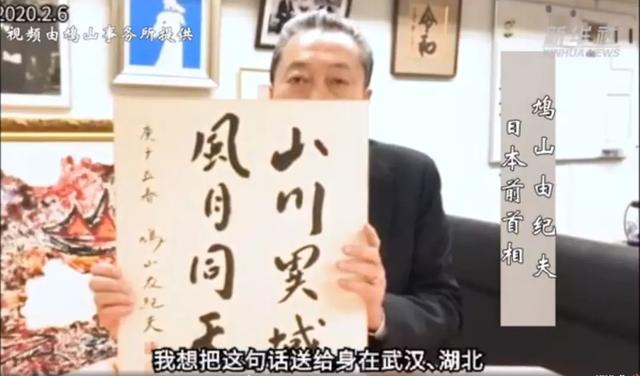 2020.2.6
视频由鸠山事务所提供
新华社
XINHUA NEWS
令和
鸠山由纪夫
日本前首相
山川異域
風月同天
庚子立春 鳩山友紀夫
我想把这句话送给身在武汉、湖北